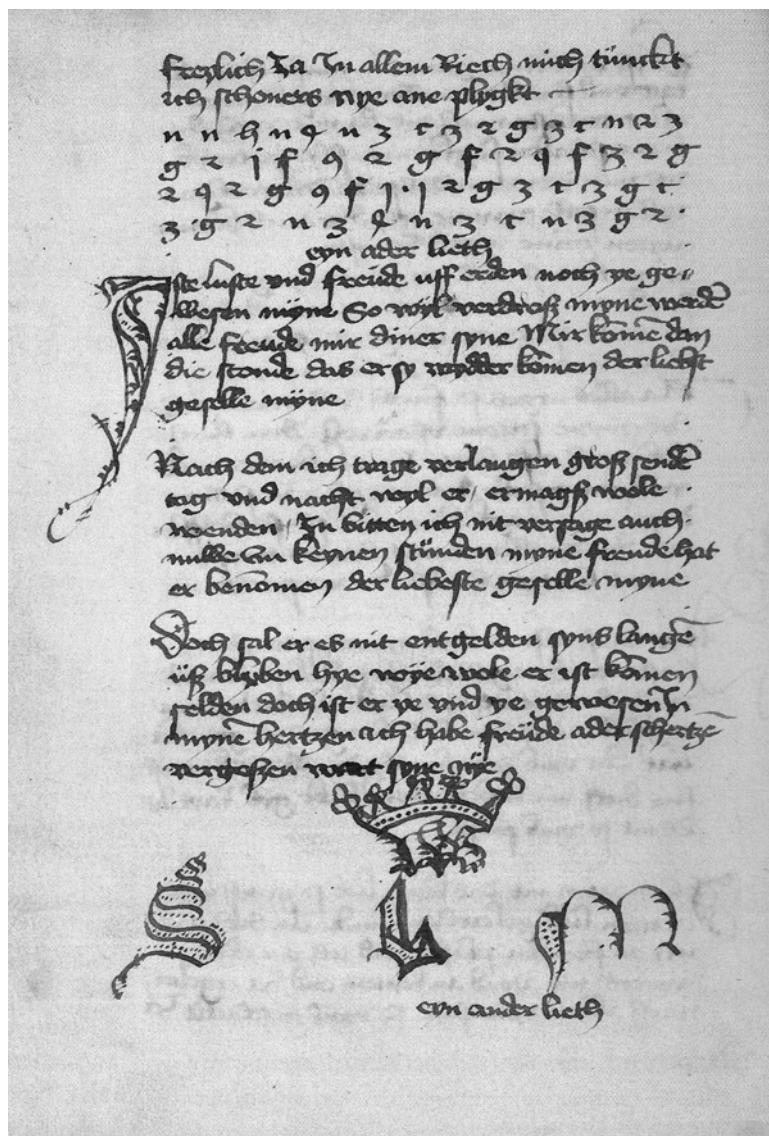 freylich Ja In allem Riech mich tünckt
ich schoners nye ane plygkt
n n h n q n z t z 2 g z t n 2 z
g 2 j f 9 2 g f 2 q f z 2 g
2 q 2 g 9 f j · j 2 g z t z g t
z · g 2 n z q n z t n z g 2 ·
eyn ader lieth
Iste luste vnd freude uff erden noch ye ge
wesen myne So wyl verdroß myne werdē
alle freude mir diner syne Mir kōmē dan
die stonde das er sy wydder kōmen der liebst
geselle myne
Nach dem ich trage verlangen groß sendē
tag vnd nacht wyl er / er magß wole
wenden / In bitten ich nit versage auch
nulle vm keynen stünden myne freude hat
er benōmen der liebeste geselle myne
Doch sal er es nit entgelden syns langē
üß blyben hye wye wole er ist kōmen
selden doch ist er ye vnd ye gewesen In
mynē hertzen ach habe freüde ader schertzē
vergeßen syne nye
S L M
eyn ander lieth